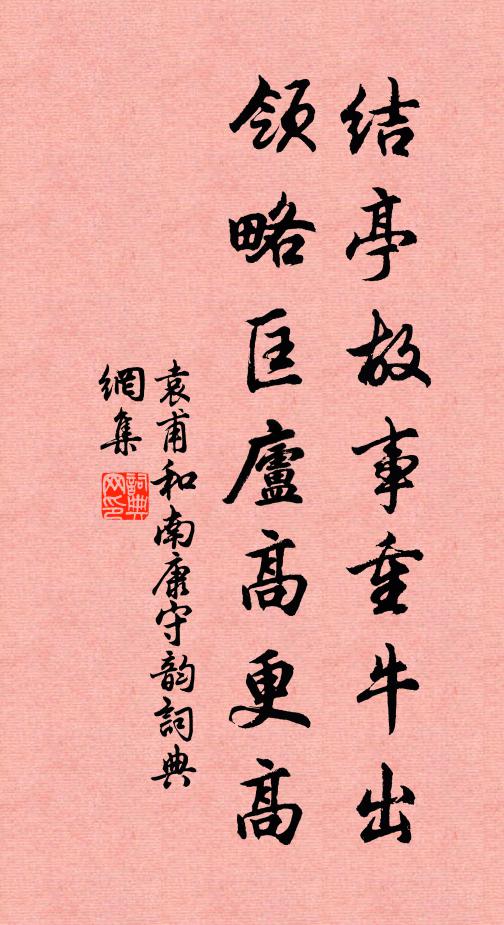 结亭故事重牛出
领略匡廬高更高
袁甫和南康守韵詞典
網集
詞典网印